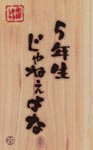 5年生
じゃねぇよな